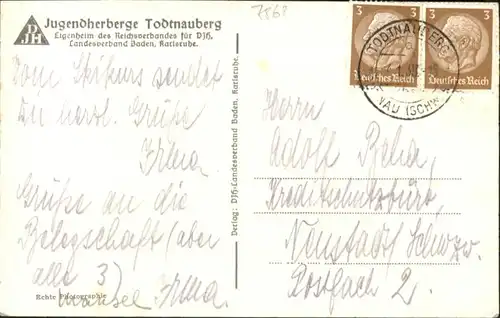 7868
DJH
Jugendherberge Todtnauberg
Eigenheim des Reichsverbandes für DJH.
Landesverband Baden, Karlsruhe.
Vom Skikurs sendet
Du herzl. Grüße
Irma
Grüße an die
Belegschaft (aber
alle 3)
Irma.
Echte Photographie
Verlag: DJH-Landesverband Baden, Karlsruhe.
3
Deutsches Reich
3
Deutsches Reich
TODTNAUBERG
NAU (SCHW
Herrn
Adolf Beha,
Kreditschutzbüro,
Neustadt Schwzw.
Postfach 2.